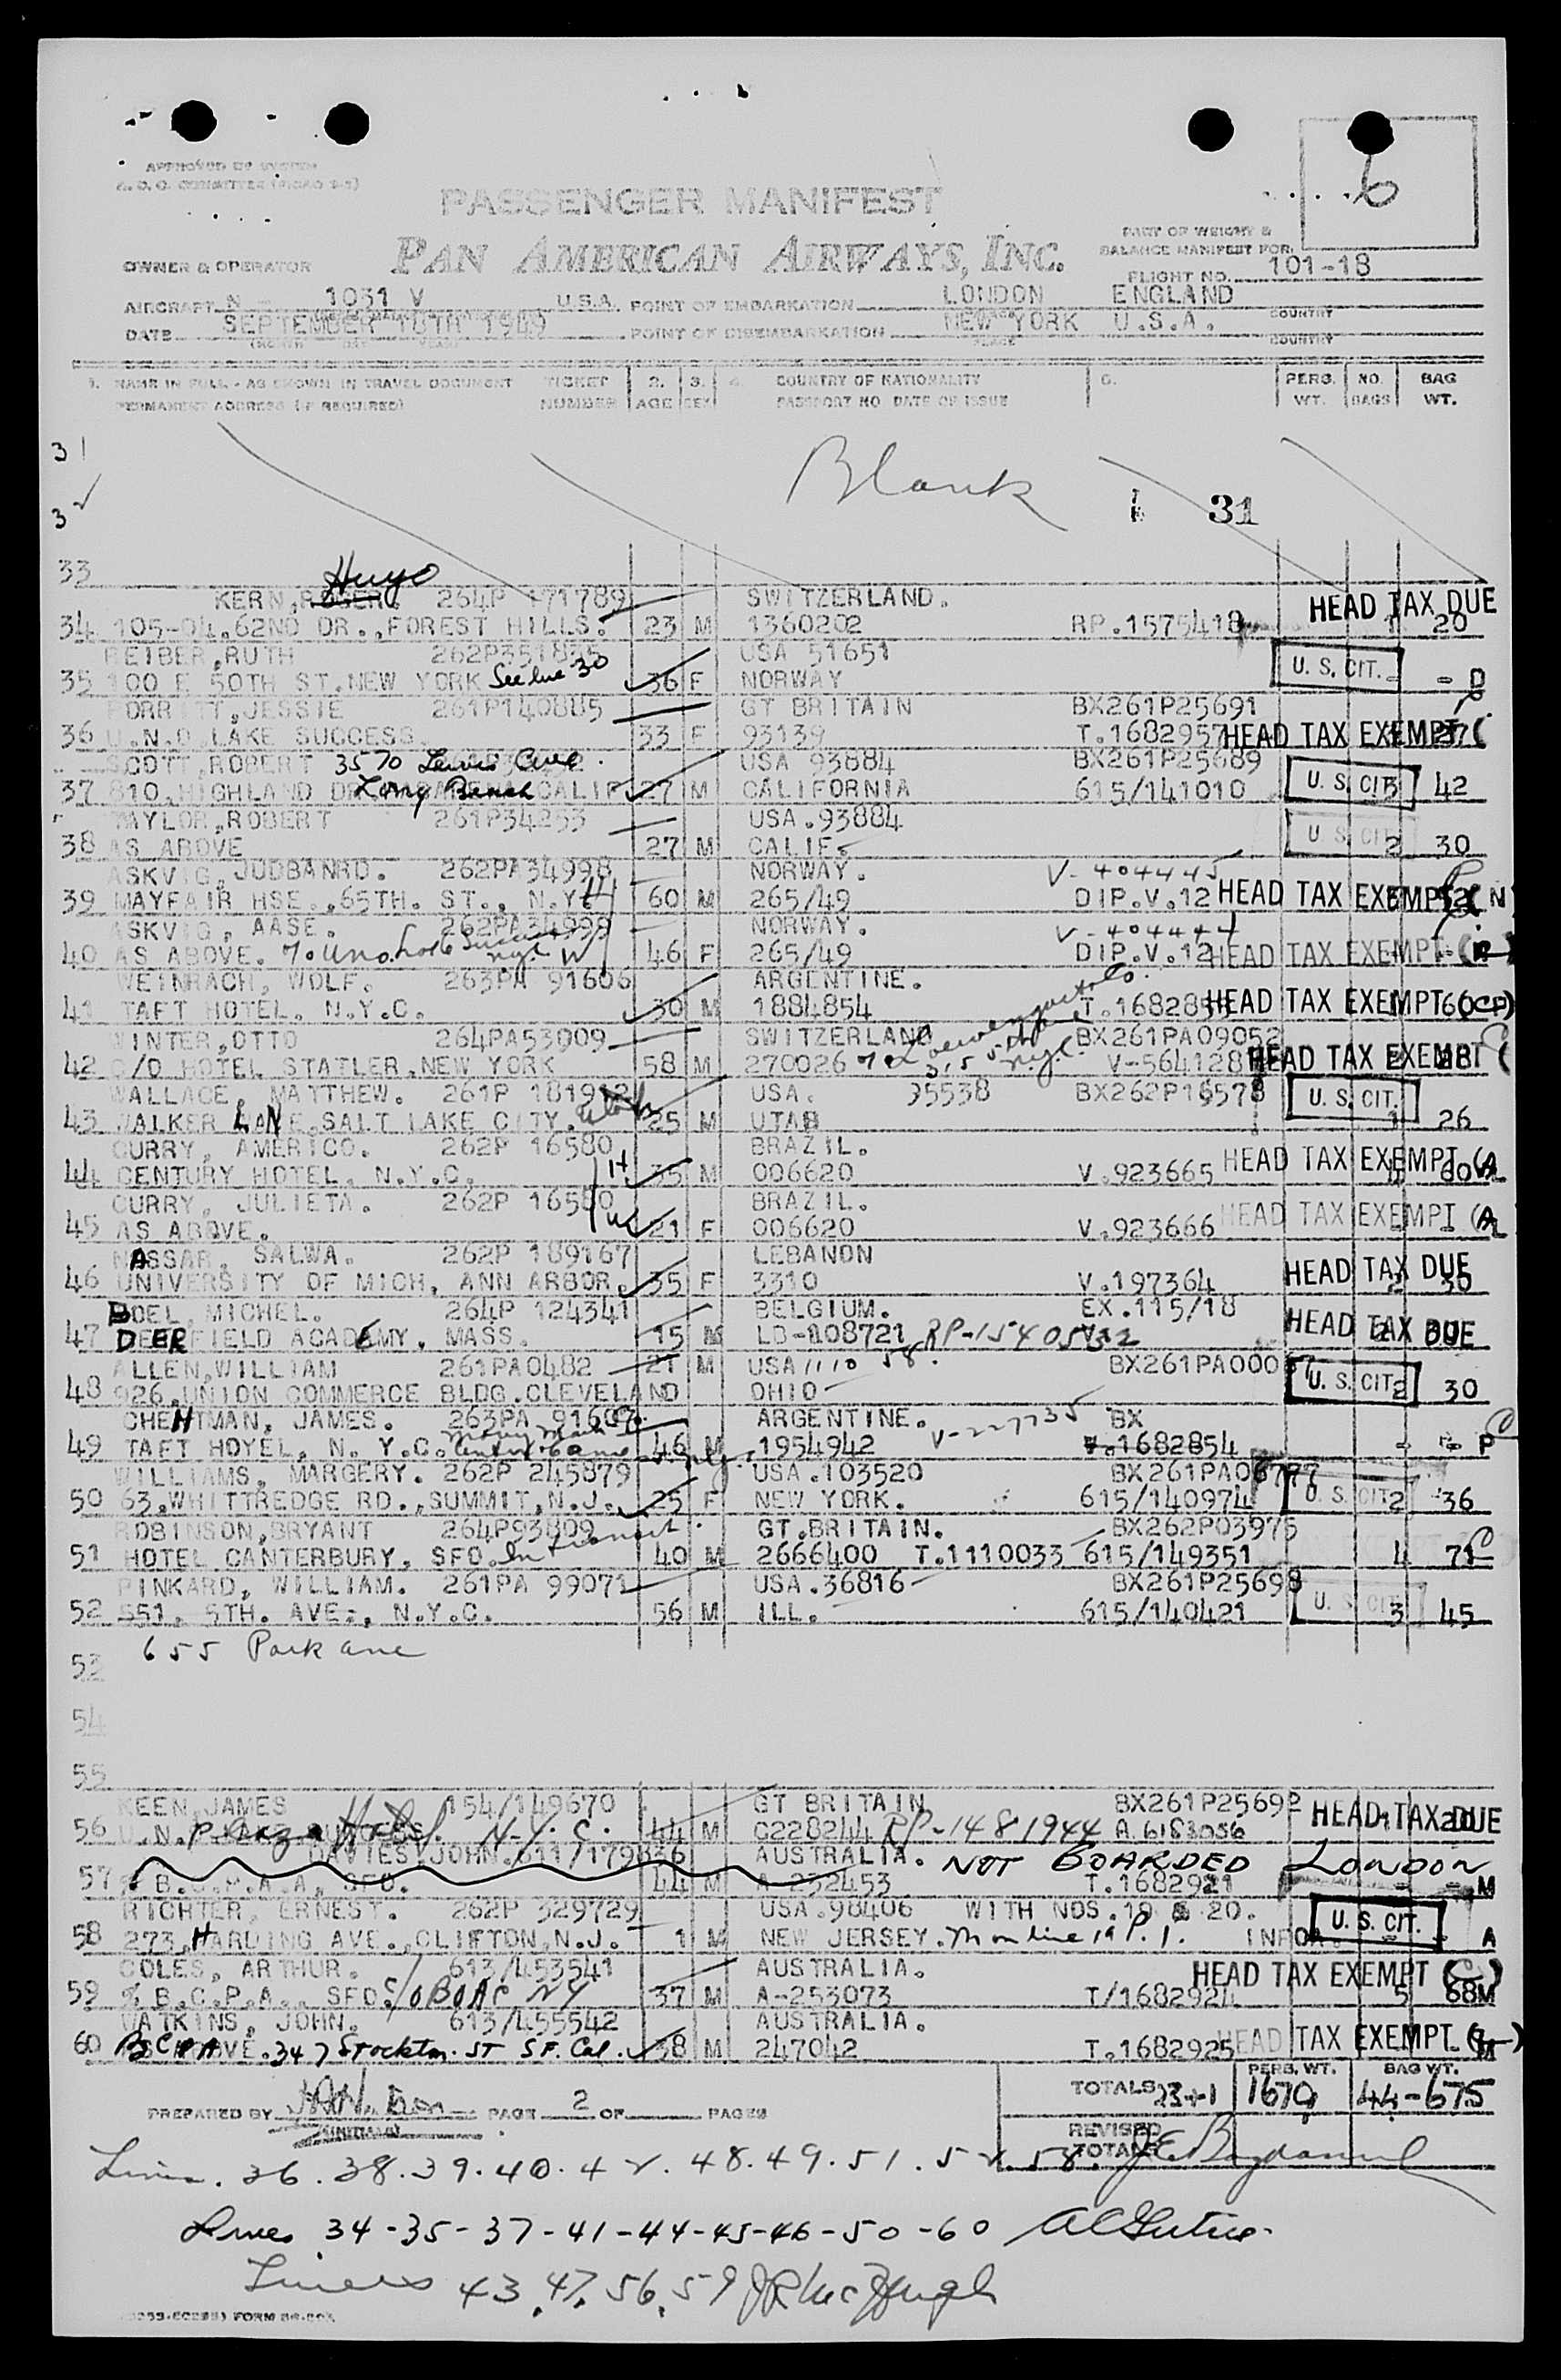 6
PASSENGER MANIFEST
PAN AMERICAN AIRWAYS, INC.
PART OF WEIGHT &
BALANCE MANIFEST FOR
OWNER & OPERATOR
FLIGHT NO. 101-18
AIRCRAFT N - 1031 V U.S.A. POINT OF EMBARKATION LONDON ENGLAND
COUNTRY
DATE SEPTEMBER 18TH 1949 POINT OF DISEMBARKATION NEW YORK U.S.A.
PLACE COUNTRY
1. NAME IN FULL - AS SHOWN IN TRAVEL DOCUMENT TICKET 2. 3. 4. COUNTRY OF NATIONALITY 6. PERS. NO. BAG
PERMANENT ADDRESS (IF REQUIRED) NUMBER AGE SEX PASSPORT NO DATE OF ISSUE WT. BAGS WT.
31
Blank
3 31
33
Hugo
KERN, ROGER. 264P 171789 SWITZERLAND. HEAD TAX DUE
34 105-04, 62ND DR., FOREST HILLS. 23 M 1360202 RP.1575418 1 20
REIBER, RUTH USA 51651
35 100 E 50TH ST. NEW YORK See line 30 36 F NORWAY U. S. CIT. - - D
JESSIE 261P140885 GT BRITAIN BX261P25691
36 U.N.O LAKE SUCCESS. 33 F 93139 T.1682957 HEAD TAX EXEMPT ( 27
SCOTT, ROBERT 3570 Lewis Ave. USA 93884 BX261P25689
37 810, HIGHLAND Long Beach CALIF 27 M CALIFORNIA 615/141010 U. S. CIT 3 42
TAYLOR, ROBERT 261P34253 USA.93884
38 AS ABOVE 27 M CALIF. U. S. CIT 2 30
ASKVIG, JUDBANRD. 262PA34998 NORWAY. V-404445
39 MAYFAIR HSE., 65TH. ST., N.Y. H 60 M 265/49 DIP.V.12 HEAD TAX EXEMPT
ASKVIG, AASE. 262PA34999 NORWAY. V-404444
40 AS ABOVE. W 46 F 265/49 DIP.V.12 HEAD TAX EXEMPT
WEINRACH, WOLF. 263PA 91606 ARGENTINE.
41 TAFT HOTEL. N.Y.C. 30 M 1884854 HEAD TAX EXEMPT 60
WINTER, OTTO 264PA53009 SWITZERLAND BX261PA09052
42 C/O HOTEL STATLER, NEW YORK 58 M 270026 HEAD TAX EXEMPT ( 28
WALLACE, MATTHEW. USA. 35538
43 WALKER LANE, SALT LAKE CITY. Utah 25 M UTAH U. S. CIT. 1 26
CURRY, AMERICO. 262P 16580 BRAZIL.
44 CENTURY HOTEL. N.Y.C. H 35 M 006620 V.923665 HEAD TAX EXEMPT 60
CURRY, JULIETA. 262P 16580 BRAZIL.
45 AS ABOVE. W 21 F 006620 V.923666 HEAD TAX EXEMPT
NASSAR, SALWA. 262P 189167 LEBANON HEAD TAX DUE
46 UNIVERSITY OF MICH, ANN ARBOR. 35 F 3310 V.197364 2 30
BOEL, MICHEL. 264P 124341 BELGIUM. EX.115/18
47 DEERFIELD ACADEMY, MASS. 15 M HEAD TAX DUE
ALLEN, WILLIAM 261PA0482 21 M USA
48 926, UNION COMMERCE BLDG. CLEVELAND OHIO U. S. CIT 2 30
CHEHTMAN, JAMES. 263PA ARGENTINE. V-227735 BX
49 TAFT HOYEL, N. Y.C. 46 M 1954942 1682854 - - P
WILLIAMS, MARGERY. 262P 245879 USA.103520
50 63, WHITTREDGE RD., SUMMIT, N.J. 25 F NEW YORK. 615/140974 U. S. CIT 2 36
ROBINSON, BRYANT 264P93809 GT.BRITAIN. BX262P03975
51 HOTEL CANTERBURY, SFO. In transit 40 M 2666400 T.1110033 615/149351 4 71
PINKARD, WILLIAM. 261PA 99071 USA.36816 BX261P25698
52 551, 5TH. AVE., N.Y.C. 56 M ILL. 615/140421 U. S. CIT 3 45
655 Park ave
53
54
55
KEEN, JAMES 154/149670 GT BRITAIN BX261P25692 HEAD TAX DUE
56 U.N. Plaza Hotel N.Y.C. 44 M C228244 RP-1481944 A.6183056 1 20
DAVIES, JOHN. 611/179836 AUSTRALIA. NOT BOARDED LONDON
57 % B.C.P.A.A, SFO. 44 M A-252453 T.1682921 - - M
RICHTER, ERNEST. 262P 329729 USA.98406 WITH NOS. 19 & 20.
58 273, HARDING AVE., CLIFTON, N.J. 1 M NEW JERSEY. M on line 19 P. 1. U. S. CIT. - A
COLES, ARTHUR. 613/453541 AUSTRALIA. HEAD TAX EXEMPT (C)
59 % B.C.P.A., SFO. c/o BOAC NY 37 M A-253073 T/1682924 5 68M
WATKINS, JOHN. 613/455542 AUSTRALIA.
60 BCPA AVE. 347 Stockton. ST SF. Cal. 38 M 247042 T.1682925 HEAD TAX EXEMPT
TOTALS 23+1 PERS. WT. 1679 BAG WT. 44-675
PREPARED BY PAGE 2 OF PAGES
REVISED
TOTALS
Lines. 36. 38. 39. 40. 42. 48. 49. 51. 52. 58.
Lines 34-35-37-41-44-45-46-50-60
Lines 43, 47, 56, 59 J R McHugh